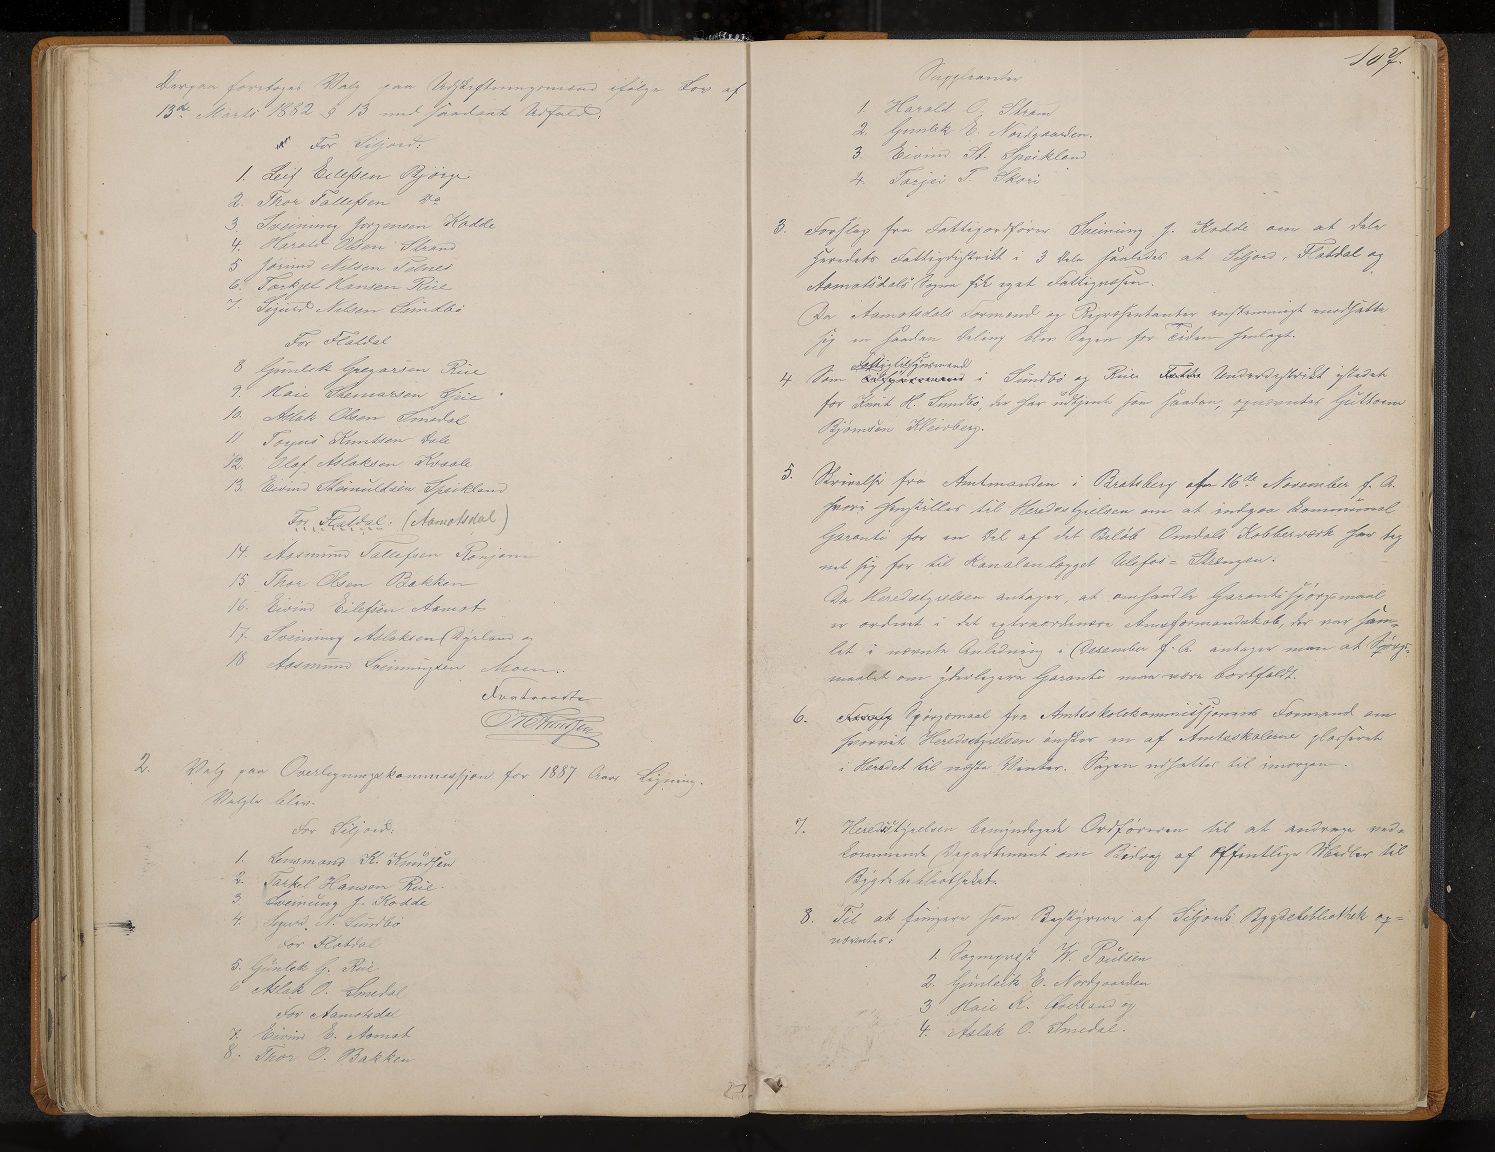 Derpaa foretoges Valg paa Udskiftningsmænd ifølge Lov af
13de Marts 1882 § 13 med saadant Udfald:
For Siljord:
1. Leif Eilefsen Bjørge
2. Thor Tallefsen do
3. Sveinung Jørgensen Kodde
4. Harald Olsen Strand
5 Jørund Nilsen Tolnes
6. Torkjel Hansen Rue
7. Sigurd Nilsen Sundbø
For Flatdal
8 Gunlek Gregarsen Rue
9. Haie Gunarsen
10. Aslak Olsen Smedal
11 Knutsen Dale
12. Olaf Aslaksen Kvaale
13. Eivind Steinuldsen Speikland
For Flatdal. (Aamotsdal)
14. Aasmund Tallefsen
15 Thor Olsen Bakken
16. Eivind Eilefsen Aamot
17. Sveinung Aslaksen Dyrland og
18 Aasmund Sveinungsen Moen.
Fratraadte
K Knudsen
2. Valg paa Overligningskommissjon for 1887 Aars Ligning.
Valgte blev.
For Siljord:
1. Lensmand K. Knudsen
2. Torkel Hansen Rue.
3. Sveinung J. Kodde
4. Sigurd N. Sundbø
For Flatdal
5. Gunlek G. Rue
6 Aslak O. Smedal
For Aamotsdal
7. Eivind E. Aamot
8. Thor O. Bakken
107.
Suppleanter
1. Harald O. Strand
2. Gunlek E. Nordgaarden.
3. Eivind St. Speikland
4. Torjei T. Skori
3. Forslag fra Fattigordfører Sveinung J. Kodde om at dele
Heredets Fattigdistrikt i 3 Dele saaledes at Siljord, Flatdal og
Aamotsdals Sogne fik eget Fattigvæsen.
Da Aamotsdals Formænd og Repræsentanter enstemmigt modsatte
sig en saadan Deling blev Sagen for Tiden henlagt.
Fattigtilsynsmand
4 Som i Sundbø og Rue Underdistrikt istedet
for Knut H. Sundbø, der har udtjent som saadan, opnævntes Guttorm
Bjørnsen Kleivberg.
5. Skrivelse fra Amtmanden i Bratsberg af 16de November f. A.
hvori henstilles til Heredsstyrelsen om at indgaa Kommunal
Garanti for en Del af det Beløb Omdals Kobberværk har teg
net sig for til Kanalanlægget Ulefos-Strengen.
Da Heredsstyrelsen antager, at omhandle Garantispørgsmaal
er ordnet i det extraordinære Amtsformandskab, der var sam-
let i nævnte Anledning i December f. A. antager man at Spørgs-
maalet om yderligere Garanti maa være bortfaldt.
6. Spørgsmaal fra Amtsskolekommissjonens Formand om
hvorvidt Heredsstyrelsen ønsker en af Amtsskolerne plasseret
i Heredet til næste Vinter. Sagen udsættes til imorgen.
7. Heredsstyrelsen bemyndigede Ordføreren til at andrage ved-
kommende Departement om Bidrag af offentlige Midler til
Bygdebibliotheket.
8. Til at fungere som Bestyrere af Siljords Bygdebibliothek op-
nævntes:
1. Sogneprest W. Poulsen
2. Gunleik E. Nordgaarden
3 Haie K. Øverland og
4. Aslak O. Smedal.